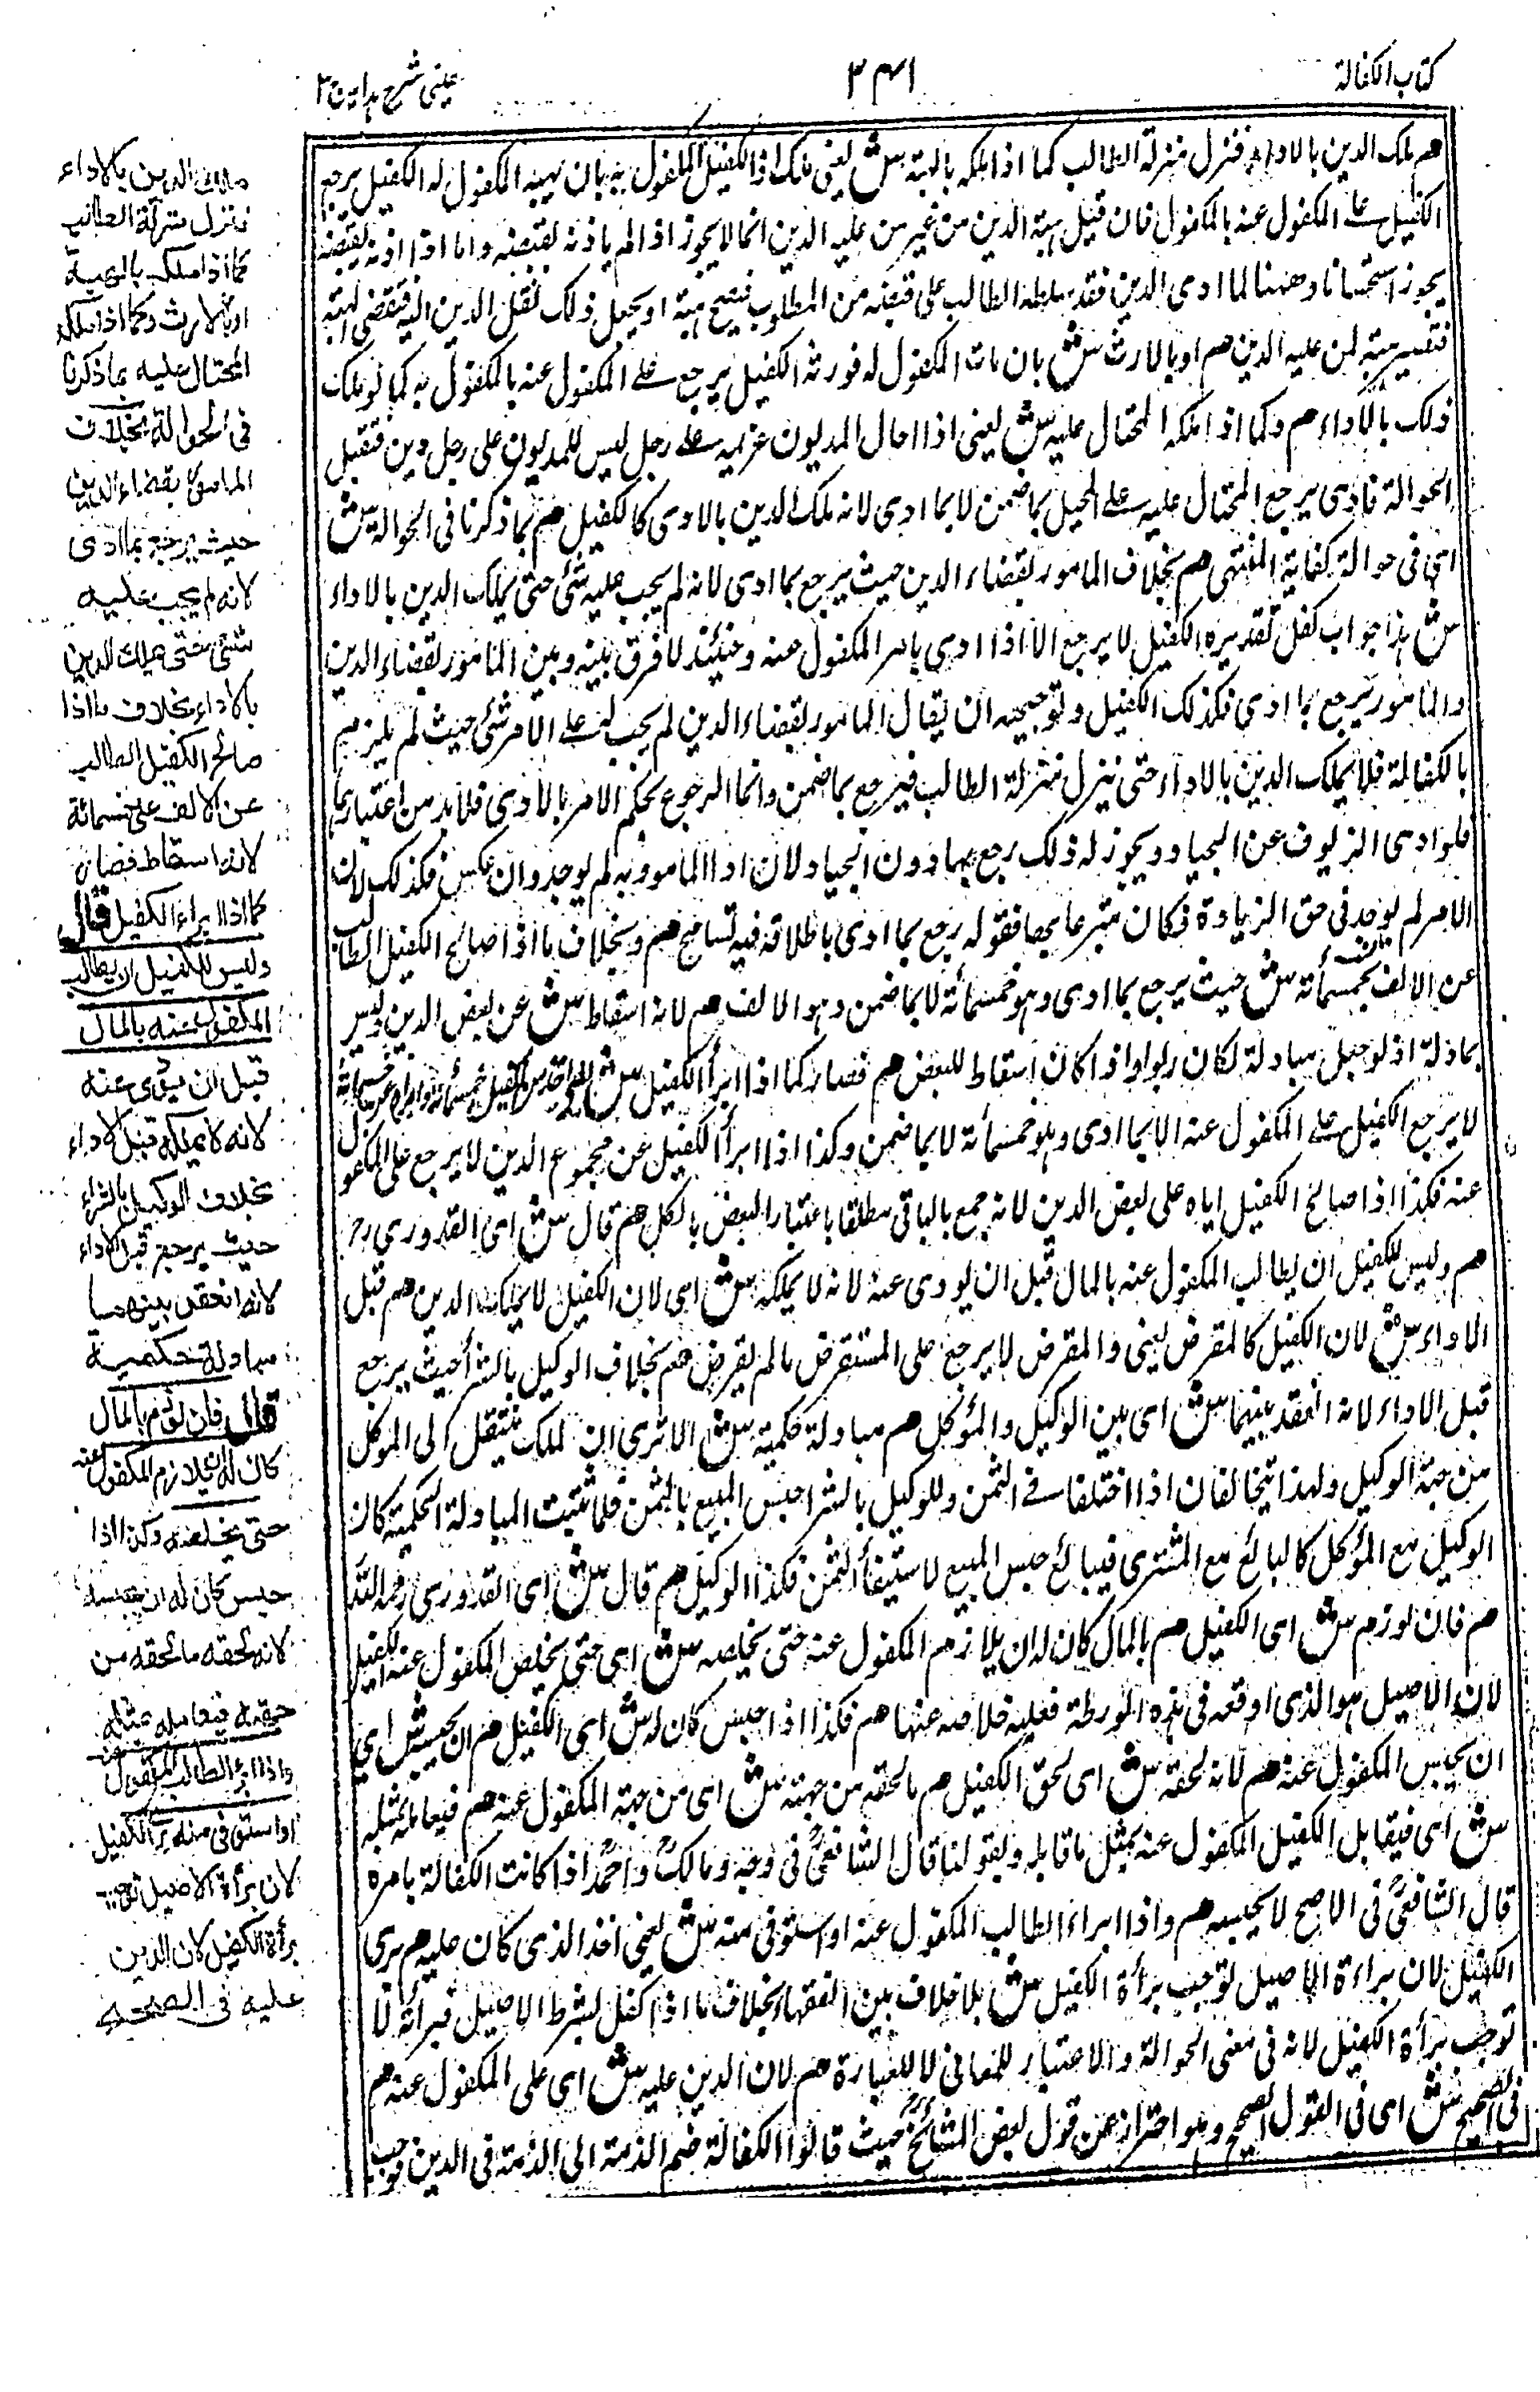 كتاب الكفالة
٣٤١
عینی شرح ہدایہ ج ٣
هم ملك الدين بالاداء فنزل منزلة الطالب كما اذا ملكه بالهبة ش يعنى ملك اذا الكفيل المكفول به بان يهبه المكفول له الكفيل يرجع
الكفيل على المكفول عنه بالمكفول فان قيل هبة الدين من غير من عليه الدين انما لا يجوز اذا لم ياذنه لقبضه واما اذا اذنه لقبضه
يجوز استحسانا وههنا لما ادى الدين فقد سلطه الطالب على قبضه من المطلوب فيصح هبة او يجعل ذلك نقل الدين اليه فتقضى الهبة
فتصير هبة لمن عليه الدين هم او بالارث ش بان مات المكفول له فورثه الكفيل يرجع على المكفول عنه بالمكفول به كما لو ملك
ذلك بالاداء هم وكما اذا ملكه المحتال عليه ش يعنى اذا احال المديون غريمه على رجل ليس للمديون على رجل دين فقبل
الحوالة فادى يرجع المحتال عليه على المحيل بما ضمن لا بما ادى لانه ملك الدين بالادى كالكفيل هم بما ذكرنا فى الحوالة ش
اى فى حوالة كفاية المنتهى هم بخلاف المامور بقضاء الدين حيث يرجع بما ادى لانه لم يجب عليه شئ حتى يملك الدين بالاداء
ش هذا جواب تقديره الكفيل لا يرجع الا اذا ادى بامر المكفول عنه وحينئذ لا فرق بينه وبين المامور بقضاء الدين
والمامور يرجع بما ادى فكذلك الكفيل وتوجيهه ان يقال المامور بقضاء الدين لم يجب له على الآمر شئ حيث لم يلتزم
بالكفالة فلا يملك الدين بالاداء حتى ينزل منزلة الطالب فيرجع بما ضمن وانما الرجوع بحكم الامر بالادى فلا بد من اعتبارهما
فلو ادى الزيوف عن الجياد ويجوز له ذلك رجع بها دون الجياد لان اداء المامور به لم يوجد وان عكس فكذلك لان
الامر لم يوجد فى حق الزيادة فكان متبرعا بها فقوله رجع بما ادى باطلاقه فيه تسامح هم وبخلاف ما اذا صالح الكفيل الطالب
عن الالف بخمسمأئة ش حيث يرجع بما ادى وهو خمسمأئة لا بما ضمن وهو الالف هم لانه اسقاط ش عن بعض الدين وليس
بمبادلة اذ لو جعل مبادلة لكان ربوا واذا كان اسقاط للبعض هم فصار كما اذا ابرأ الكفيل ش
لا يرجع الكفيل على المكفول عنه الا بما ادى وهو خمسمأئة لا بما ضمن وكذا اذا ابرأ الكفيل عن مجموع الدين لا يرجع على المكفول
عنه فكذا اذا صالح الكفيل اياه على بعض الدين لانه جمع بالباقى مطلقا باعتبار البعض بالكل هم قال ش اى القدورى رح
هم وليس للكفيل ان يطالب المكفول عنه بالمال قبل ان يودى عنه لانه لا يملكه ش اى لان الكفيل لا يملك الدين هم قبل
الاداء ش لان الكفيل كالمقرض يعنى والمقرض لا يرجع على المستقرض ما لم يقرض هم بخلاف الوكيل بالشرأ حيث يرجع
قبل الاداء لانه انعقد بينهما ش اى بين الوكيل والمؤكل هم مبادلة حكمية ش الا ترى ان الملك ينتقل الى المؤكل
من جهة الوكيل ولهذا يتحالفان اذا اختلفا فى الثمن وللوكيل بالشرا حبس المبيع بالثمن فلما ثبتت المبادلة الحكمية كان
الوكيل مع المؤكل كالبائع مع المشترى فيبائع حبس المبيع لاستيفأ الثمن فكذا الوكيل هم قال ش اى القدورى رحمه الله
هم فان لوزم ش اى الكفيل هم بالمال كان له ان يلازم المكفول عنه حتى يخلصه ش اى حتى يخلص المكفول عنه الكفيل
لان الاصيل هو الذى اوقعه فى هذه الورطة فعليه خلاصه عنها هم فكذا اذا حبس كان له ش اى الكفيل هم ان يحبسه ش اى
ان يحبس المكفول عنه هم لانه لحقه ش اى لحق الكفيل هم ما لحقه من جهته ش اى من جهة المكفول عنه هم فيعامله بمثله
ش اى فيقابل الكفيل المكفول عنه بمثل ما قابله وبقولنا قال الشافعىؒ فى وجه ومالكؒ واحمدؒ اذا كانت الكفالة بامره
قال الشافعىؒ فى الاصح لا يحبسه هم واذا ابراء الطالب المكفول عنه او استوفى منه ش يعنى اخذ الذى كان عليه هم برى
الكفيل لان براءة الاصيل توجب برأة الكفيل ش بلا خلاف بين الفقهاء بخلاف ما اذا كفل بشرط الاصيل فبرأته لا
توجب برأة الكفيل لانه فى معنى الحوالة والاعتبار للمعانى لا للعبارة هم لان الدين عليه ش اى على المكفول عنه هم
فى الصحيح ش اى فى القول الصحيح وهو احتراز عن قول بعض المشائخؒ حيث قالوا الكفالة ضم الذمة الى الذمة فى الدين فوجب
ملك الدين بالاداء
فنزل منزلة الطالب
كما اذا ملكه بالهبة
او بالارث وكما اذا ملكه
المحتال عليه بما ذكرنا
فى الحوالة بخلاف
المامور بقضاء الدين
حيث يرجع بما ادى
لانه لم يجب عليه
شئ حتى يملك الدين
بالاداء بخلاف ما اذا
صالح الكفيل الطالب
عن الالف على خمسمائة
لانه اسقاط فصار
كما اذا ابراء الكفيل قال
وليس للكفيل ان يطالب
المكفول عنه بالمال
قبل ان يؤدى عنه
لانه لا يملكه قبل الاداء
بخلاف الوكيل بالشراء
حيث يرجع قبل الاداء
لانه انعقد بينهما
مبادلة حكمية
قال فان لوزم بالمال
كان له ان يلازم المكفول عنه
حتى يخلصه وكذا اذا
حبس كان له ان يحبسه
لانه لحقه ما لحقه من
جهته فيعامله بمثله
واذا ابرأ الطالب المكفول عنه
او استوفى منه برأ الكفيل
لان برأة الاصيل توجب
برأة الكفيل لان الدين
عليه فى الصحيح